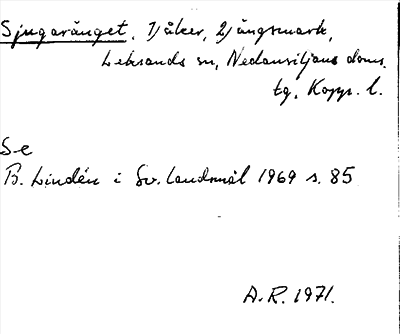 Sjugaränget, 1) åker, 2) ängsmark,
Leksands sn, Nedansiljans doms.
tg, Kopp. l.
Se
B. Lindén i Sv. Landsmål 1969 s. 85
A.R. 1971.